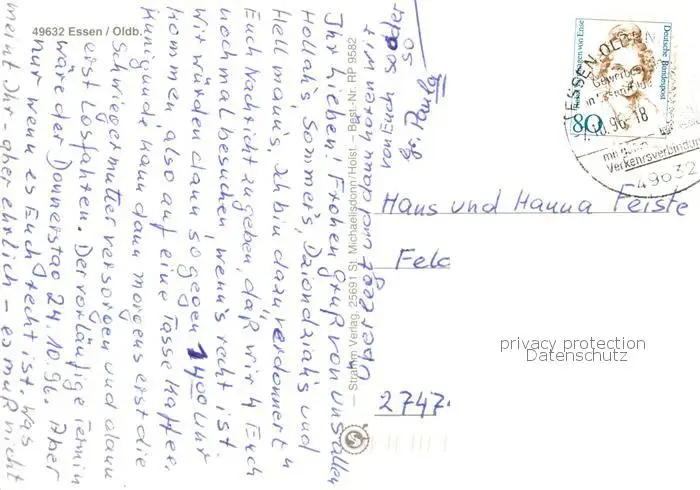 49632 Essen / Oldb.
Ihr Lieben! Frohen Gruß von uns allen
Hollah's, Sommer's, Dziondziah's und
Hellmann's. Ich bin dazu verdonnert
Euch Nachricht zu geben, daß wir 4 Euch
nochmal besuchen, wenn's recht ist.
Wir würden dann so gegen 1400 Uhr
kommen, also auf eine Tasse Kaffee.
Kunigunde kann dann morgens erst die
Schwiegermutter versorgen und dann
erst losfahren. Der vorläufige Termin
wäre der Donnerstag 24.10.96. Aber
nur wenn es Euch recht ist, was
meint Ihr - aber ehrlich - es muß nicht
Überzogen und dann hören wir
von Euch so oder
so
Gr. Paula
Stramm Verlag, 25691 St. Michaelisdonn/Holst. – Best.-Nr. RP 9582
Deutsche Bundespost
von Ense
80
ESSEN, OLDB
Gewerbe
96-18
mit guten
Verkehrsverbindung
49632
Hans und Hanna Feiste
Feld
2747
privacy protection
Datenschutz